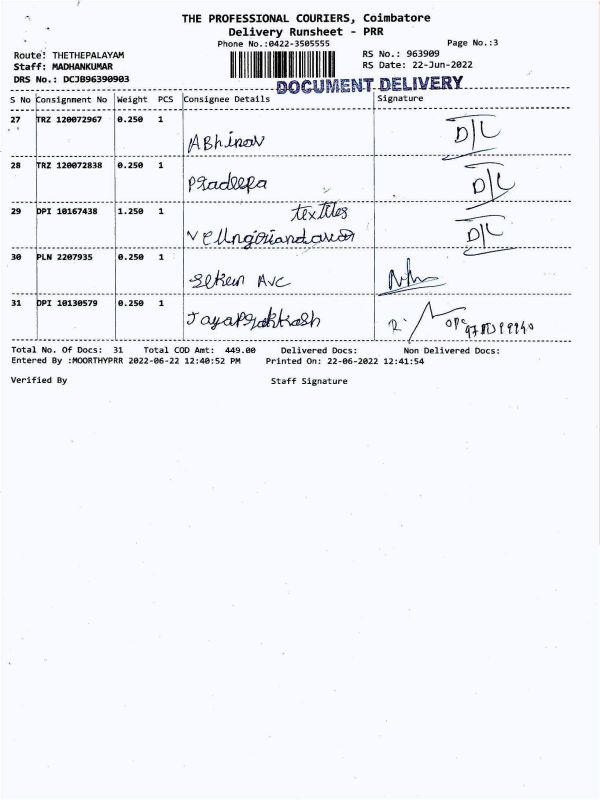 THE PROFESSIONAL COURIERS, Coimbatore
Delivery Runsheet - PRR
Phone No.:0422-3505555
Page No.:3
Route: THETHEPALAYAM
RS No.: 963909
Staff: MADHANKUMAR
RS Date: 22-Jun-2022
DRS No.: DCJB96390903
DOCUMENT DELIVERY
S No Consignment No Weight PCS Consignee Details Signature
27 TRZ 120072967 0.250 1
ABhinav D/L
28 TRZ 120072838 0.250 1
Pradeepa D/L
29 DPI 10167438 1.250 1
textiles
D/L
30 PLN 2207935 0.250 1
AVC
31 DPI 10130579 0.250 1
JayaPrakash
Total No. Of Docs: 31 Total COD Amt: 449.00 Delivered Docs: Non Delivered Docs:
Entered By :MOORTHYPRR 2022-06-22 12:40:52 PM Printed On: 22-06-2022 12:41:54
Verified By Staff Signature